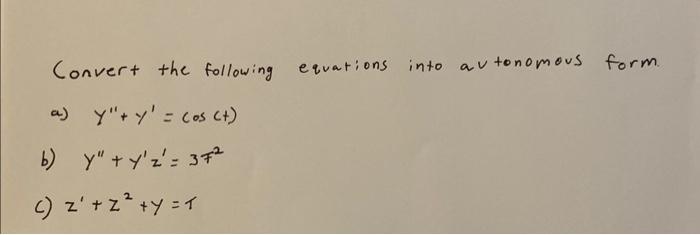 Convert the following equations into autonomous form.
a) y" + y' = cos(t)
b) y" + y'z' = 3t²
c) z' + z² + y = t